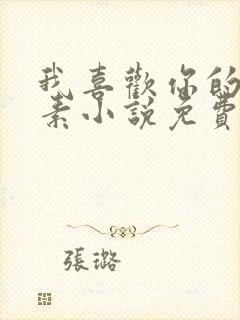 我喜歡你的
素小說免費
張璐